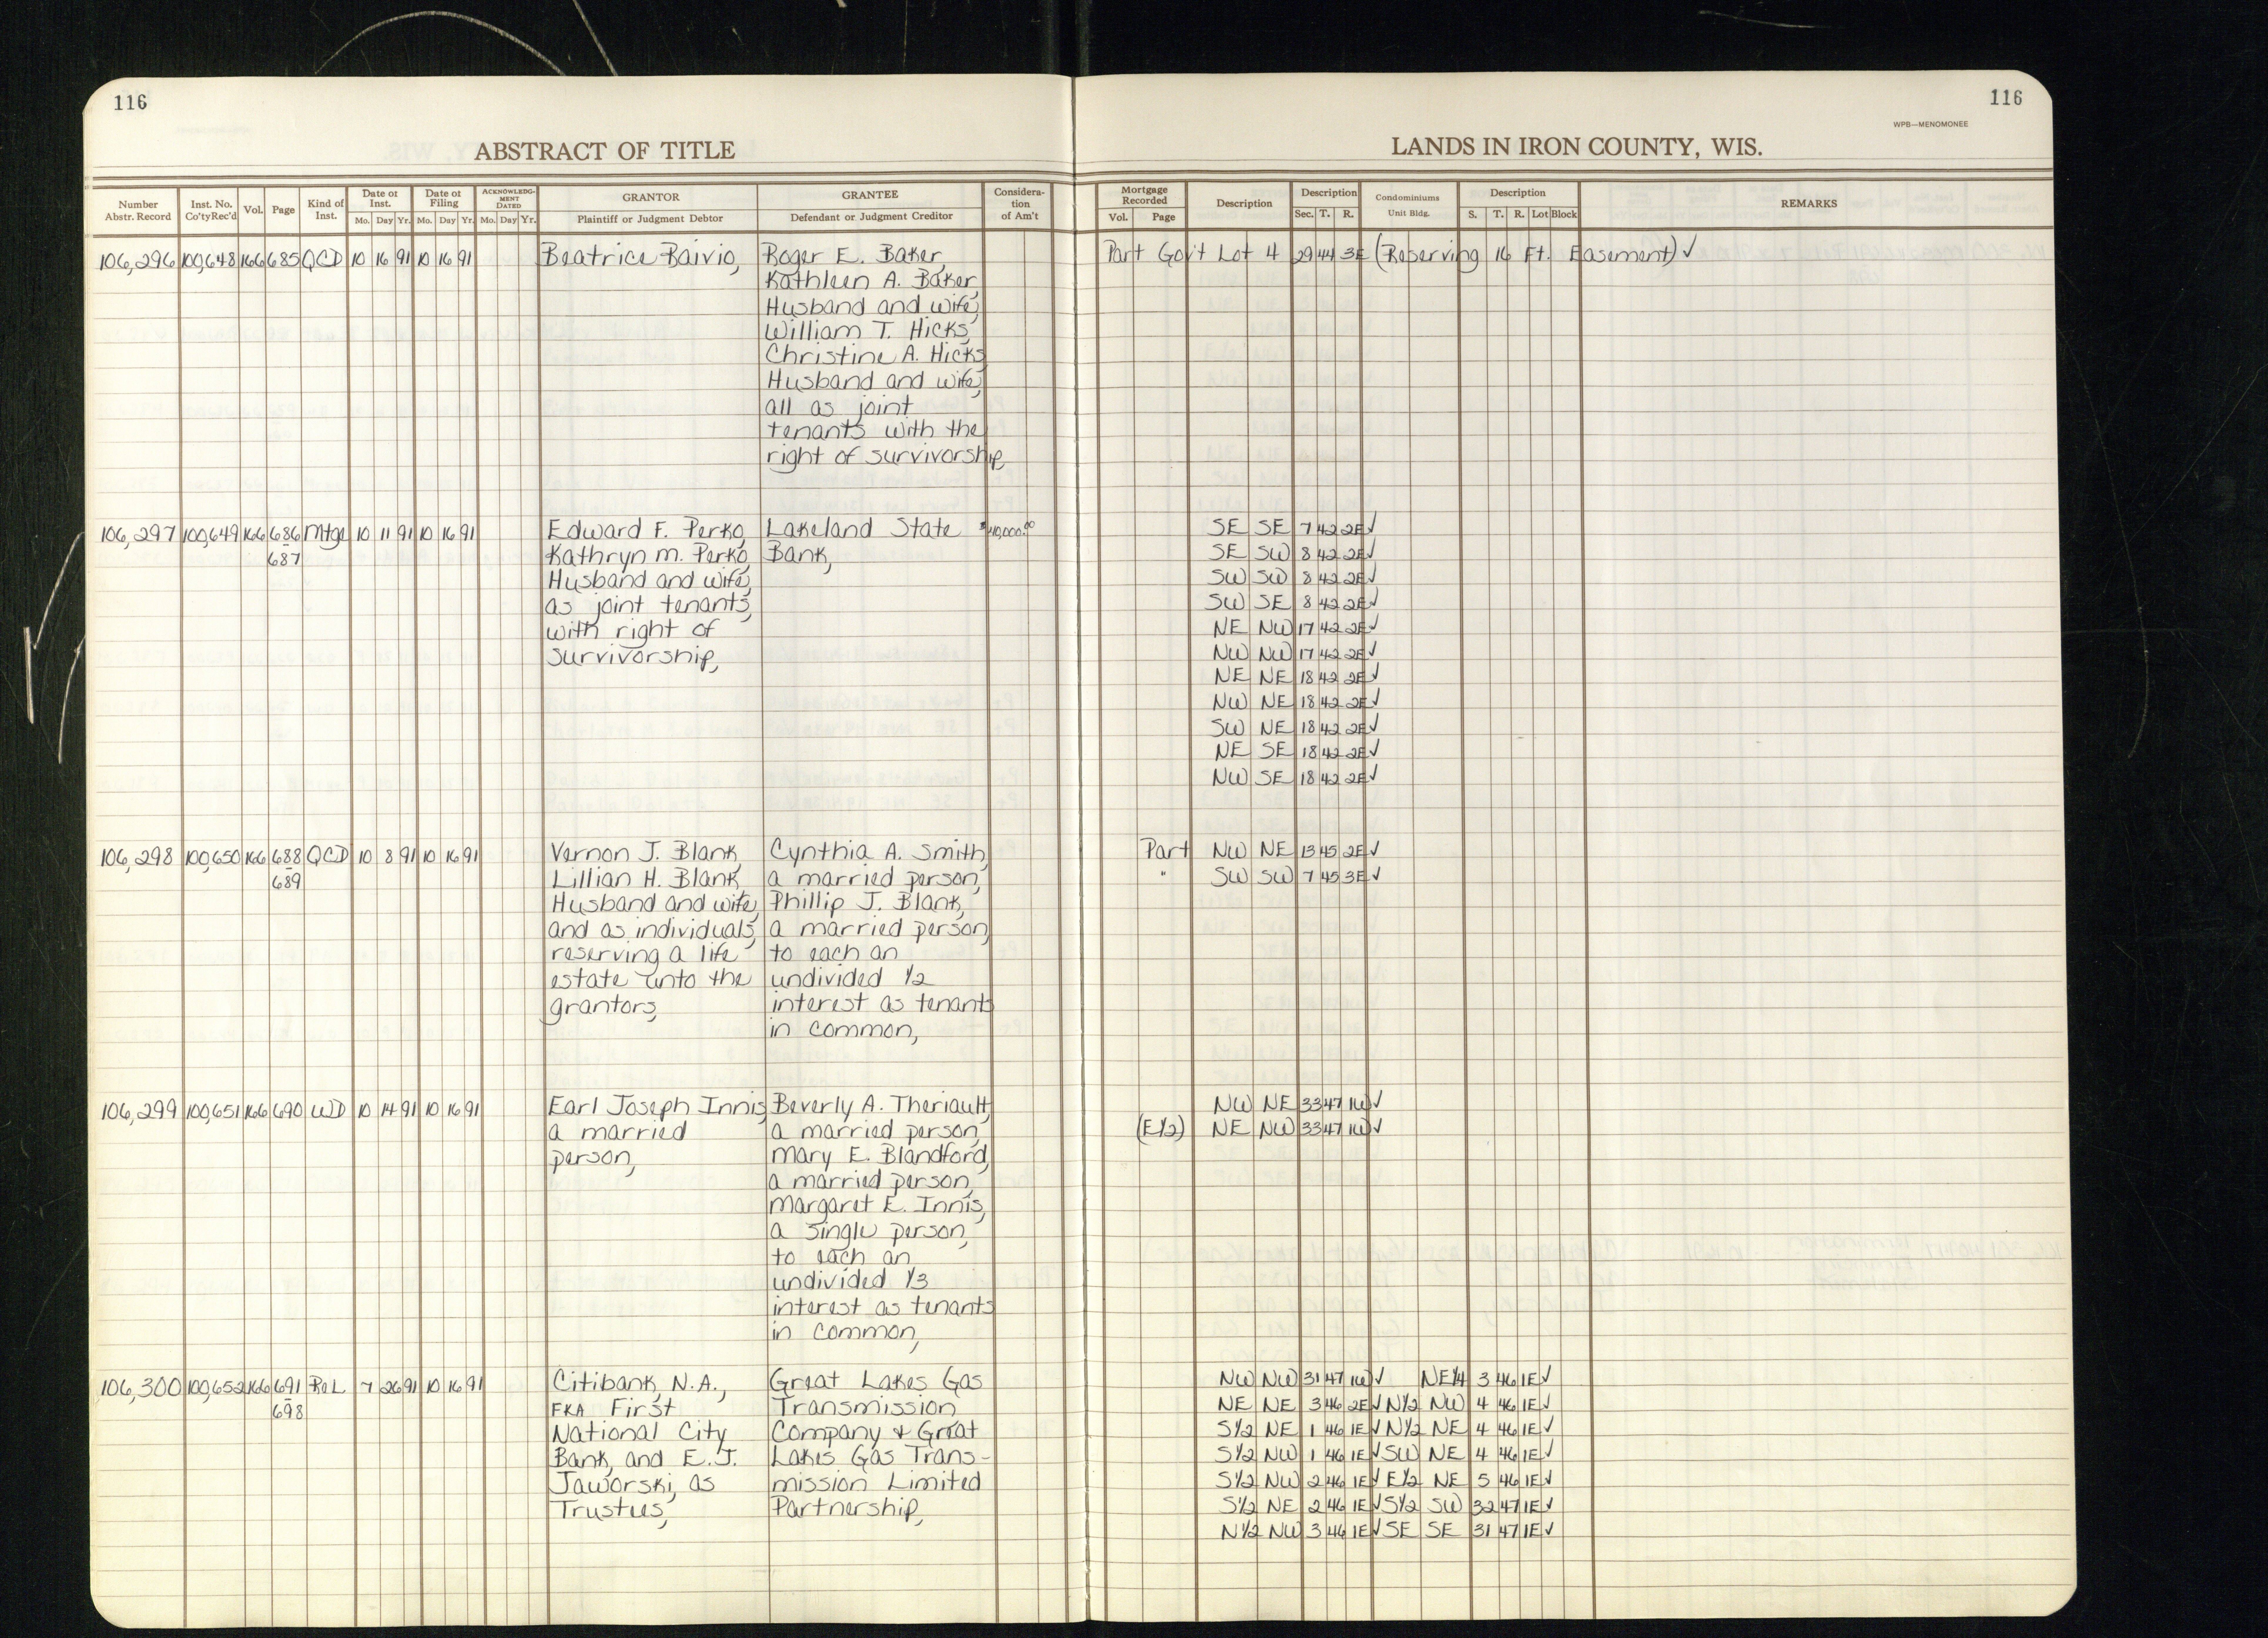 116
116
WPB—MENOMONEE
ABSTRACT OF TITLE
LANDS IN IRON COUNTY, WIS.
Number Abstr. Record | Inst. No. Co'ty Rec'd | Vol. | Page | Kind of Inst. | Date of Inst. Mo. Day Yr. | Date of Filing Mo. Day Yr. | ACKNOWLEDGMENT DATED Mo. Day Yr. | GRANTOR Plaintiff or Judgment Debtor | GRANTEE Defendant or Judgment Creditor | Consideration of Am't | Mortgage Recorded Vol. Page | Description | Description Sec. T. R. | Condominiums Unit Bldg. | Description S. T. R. Lot Block | REMARKS
106,296 100,648 166 685 QCD 10 16 91 10 16 91 Beatrice Raivio, Roger E. Baker, Part Gov't Lot 4 29 44 3E (Reserving 16 Ft. Easement) ✓
Kathleen A. Baker,
Husband and wife,
William T. Hicks,
Christine A. Hicks,
Husband and wife,
all as joint
tenants with the
right of survivorship,
106,297 100,649 166 686 Mtge 10 11 91 10 16 91 Edward F. Perko, Lakeland State $40,000.00 SE SE 7 42 2E ✓
687 Kathryn M. Perko, Bank, SE SW 8 42 2E ✓
Husband and wife, SW SW 8 42 2E ✓
as joint tenants, SW SE 8 42 2E ✓
with right of NE NW 17 42 2E ✓
survivorship, NW NW 17 42 2E ✓
NE NE 18 42 2E ✓
NW NE 18 42 2E ✓
SW NE 18 42 2E ✓
NE SE 18 42 2E ✓
NW SE 18 42 2E ✓
106,298 100,650 166 688 QCD 10 8 91 10 16 91 Vernon J. Blank, Cynthia A. Smith, Part NW NE 13 45 2E ✓
689 Lillian H. Blank, a married person, " SW SW 7 45 3E ✓
Husband and wife, Phillip J. Blank,
and as individuals, a married person,
reserving a life to each an
estate unto the undivided 1/2
grantors, interest as tenants
in common,
106,299 100,651 166 690 WD 10 14 91 10 16 91 Earl Joseph Innis, Beverly A. Theriault, NW NE 33 47 1W ✓
a married a married person, (E1/2) NE NW 33 47 1W ✓
person, Mary E. Blandford,
a married person,
Margaret E. Innis,
a single person,
to each an
undivided 1/3
interest as tenants
in common,
106,300 100,652 166 691 Rel 7 26 91 10 16 91 Citibank, N.A., Great Lakes Gas NW NW 31 47 1W ✓ NE1/4 3 46 1E ✓
698 FKA First Transmission NE NE 3 46 2E ✓ N1/2 NW 4 46 1E ✓
National City Company & Great S1/2 NE 1 46 1E ✓ N1/2 NE 4 46 1E ✓
Bank, and E.J. Lakes Gas Trans- S1/2 NW 1 46 1E ✓ SW NE 4 46 1E ✓
Jaworski, as mission Limited S1/2 NW 2 46 1E ✓ E1/2 NE 5 46 1E ✓
Trustees, Partnership, S1/2 NE 2 46 1E ✓ S1/2 SW 32 47 1E ✓
N1/2 NW 3 46 1E ✓ SE SE 31 47 1E ✓